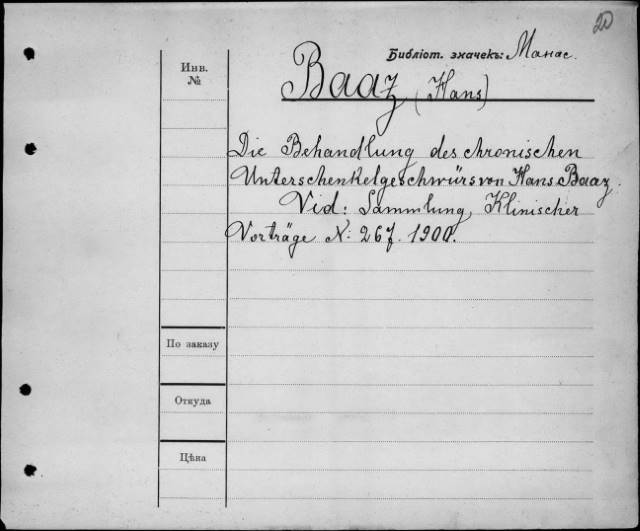 20
Библіот. значекъ: Манас.
Инв.
№
Baaz (Hans)
Die Behandlung des chronischen
Unterschenkelgeschwürs von Hans Baaz.
Vid: Sammlung Klinischer
Vorträge N: 267. 1900.
По заказу
Откуда
Цѣна